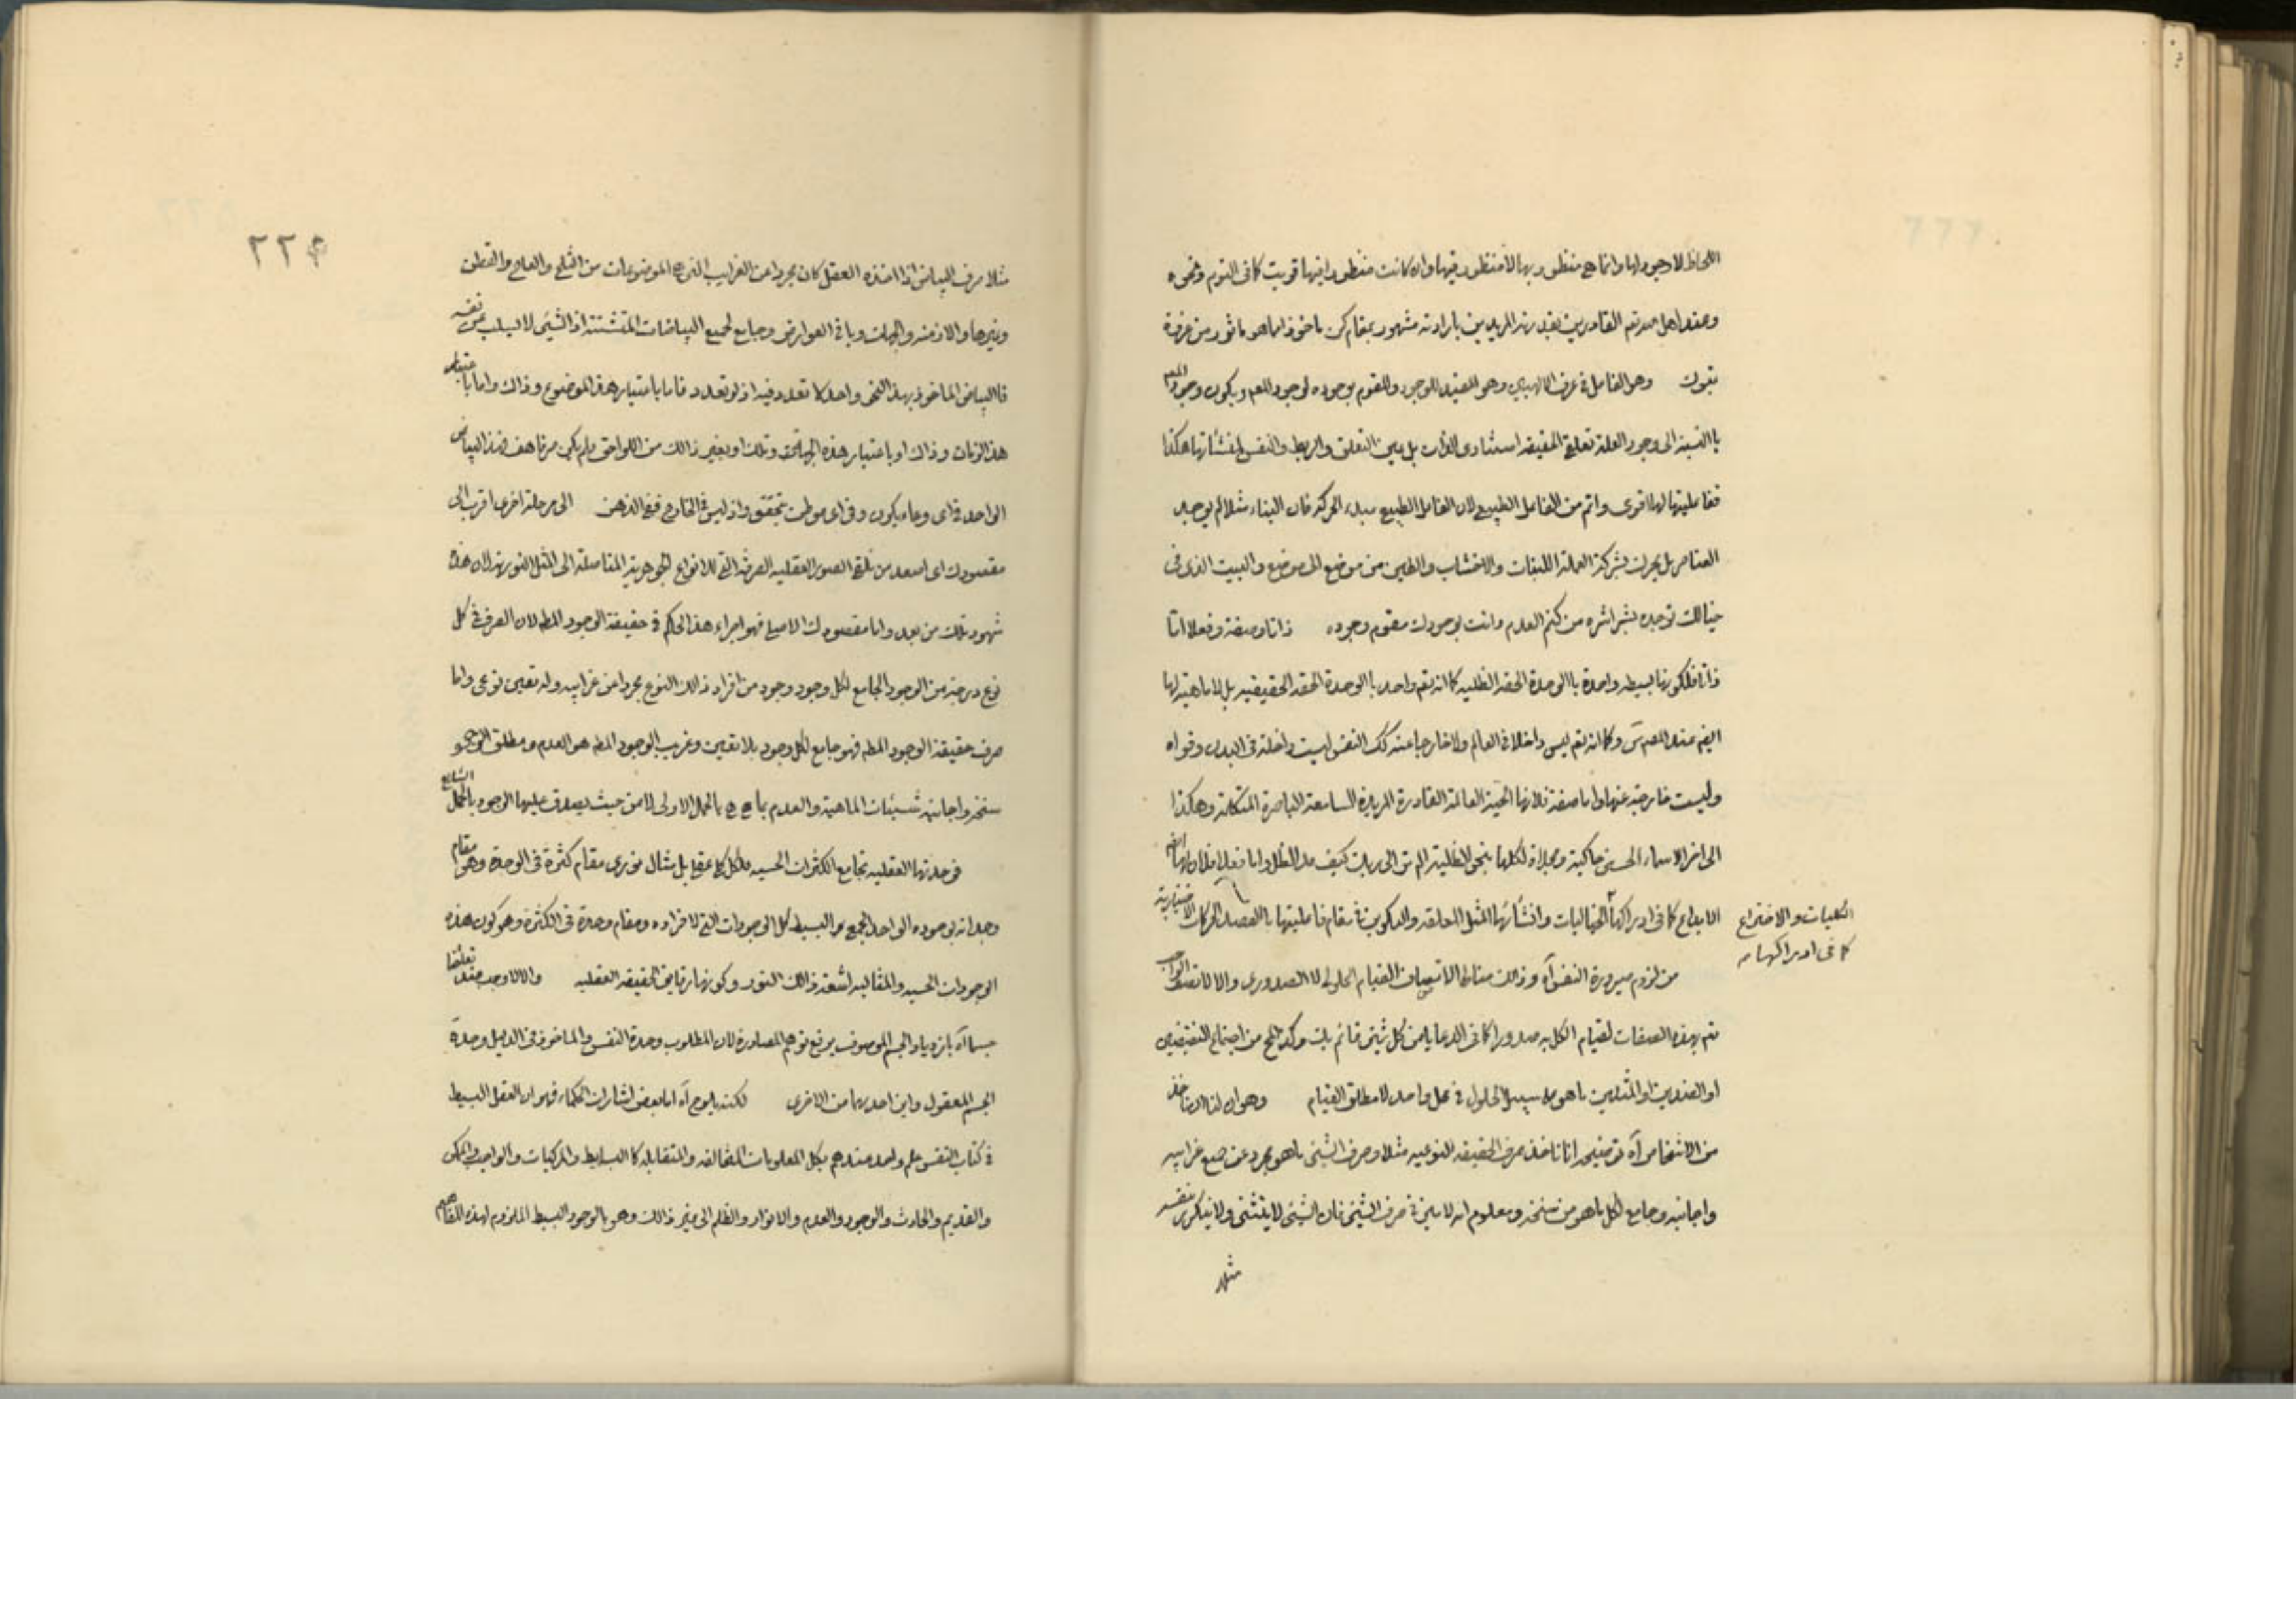 اللحاظ لا وجود لها وانما هى منظور بها لا منظور فيها وان كانت منظورا فيها قويت كما فى النوم ونحوه
وعند اهل الله تعم القادرين بقدرته المريدين بارادته مشهور بمقام كن ماخوذا ما هو ماثور من غرفة
بقولك وهو الفاعل فى عرف الالهيين وهو المفيد للوجود والمقوم بوجوده لوجود المعلو ويكون وجود المعلو
بالنسبة الى وجود العلة تعلق الحقيقه استنادى الذات بل عين التعلق والربط والنفس لمنشآتها هكذا
ففاعليتها لها اقوى واتم من الفاعل الطبيعى لان الفاعل الطبيعى مبدء الحركه فان البناء مثلا لم يوجد
العناصر بل يحرك بشركة العملة اللبنات والاخشاب والطين من موضع الى موضع والبيت الذى فى
خيالك توجده بشراشره من كتم العدم وانت بوجودك مقوم وجوده ذاتا وصفة وفعلا اما
ذاتا فلكونها بسيطه واحدة بالوحدة الحقه الظليه كما انه تعم واحد بالوحدة الحقه الحقيقيه بل لا ماهية لها
ايضم عند المصنّ وكما انه تعم ليس داخلا فى العالم ولا خارجا عنه كك النفس ليست داخلة فى البدن وقواه
وليست خارجة عنها واما صفة فلانها الحية العالمة القادرة المريدة السامعة الباصرة المتكلمة وهكذا
الى اخر الاسماء الحسنى حاكية ومجلاة لكلها بنحو الظلية الم تر الى ربك كيف مد الظل واما فعلا فلان لها
الابداع كما فى ادراكها الخياليات وانشائها المثل المعلقه والتكوين فى مقام فاعليتها بالقصد للحركات الاختيارية
الكليات والاختراع
كما فى ادراكها مـ
من لزوم صيرورة النفس آه وذلك مناط الاتصاف القيام الحلولى لا الصدورى والا لاتصف الواجب
تعم بهذه الصفات لقيام الكل به صدورا كما فى الدعا يا من كل شيئى قائم بك وكذا المح من اجتماع النقيضين
او الضدين او المثلين ما هو على سبيل الحلول فى محل واحد لا مطلق القيام وهو ان لنا ان ناخذ
من الاشخاص آه توضيحه انا ناخذ صرف الحقيقه النوعيه مثلا وصرف الشيئى ما هو مجرد عن جميع غرايبه
واجانبه وجامع لكل ما هو من سنخه ومعلوم انه لا ميز فى صرف الشيئى فان الشيئى لا يتثنى ولا يتكرر بنفسه
مثلا
٢٢٤
مثلا صرف البياض اذا اخذه العقل كان مجردا عن الغرايب التى هى الموضوعات من الثلج والعاج والقطن
وغيرها والازمنه والجهات وباقى العوارض وجامع لجميع البياضات المتشتته اذ الشيئى لا يسلب عن نفسه
فالبياض الماخوذ بهذا النحو واحد لا تعدد فيه اذ لو تعدد فاما باعتبار هذا الموضوع وذاك واما باعتبار
هذا الزمان وذاك او باعتبار هذه الجهة وتلك او بغير ذالك من اللواحق ولم يكن صرفا هف فهذا البياض
الواحد فى اى وعاء يكون وفى اى موطن تحقق واذ ليس فى الخارج ففى الذهن الى مرحلة اخرى اقرب الى
مقصودك اى اصعد من تلقى الصور العقليه الصرفة التى للانواع الجوهرية المتاصلة الى المثل النورية لان هذه
شهود تلك من بعد واما مقصودك الاصلى فهو اجراء هذا الحكم فى حقيقة الوجود المطه لان الصرف فى كل
نوع درجة من الوجود الجامع لكل وجود وجود من افراد ذالك النوع مجردا عن غرايبه وله تعين نوعى واما
صرف حقيقة الوجود المطه فهو جامع لكل وجود بلا تعين وغريب الوجود المطه هو العدم ومطلق الوجود
سنخه واجانبه شيئيات الماهية والعدم بما هى هى بالحمل الاولى لا من حيث يصدق عليها الوجود بالحمل الشايع
فوحدتها العقليه تجامع الكثرات الحسيه للكل كلى عقلى بل مثال نورى مقام كثرة فى الوحدة وهو مقام
وجدانه بوجوده الواحد الجمعى والبسيط كل الوجودات التى لافراده ومقام وحدة فى الكثرة وهو كون هذه
الوجودات الحسيه والمثاليه اشعة ذالك النور وكونها رقايق الحقيقه العقليه والا لا وجه
جسما آه بازدياد الجسم الموصوف يرفع توهم المصادرة لان المطلوب وحدة النفس والماخوذ فى الدليل وحدة
الجسم المعقول واين احديهما من الاخرى لكنه يلوح آه اما بعض اشارات الحكماء فهو ان العقل البسيط
فى كتاب النفس علم واحد عندهم بكل المعلومات المتخالفه والمتقابله كالبسايط والمركبات والواجب والممكن
والقديم والحادث والوجود والعدم والانوار والظلم الى غير ذالك وهو بالوجود البسيط الملزوم لهذه المفاهيم